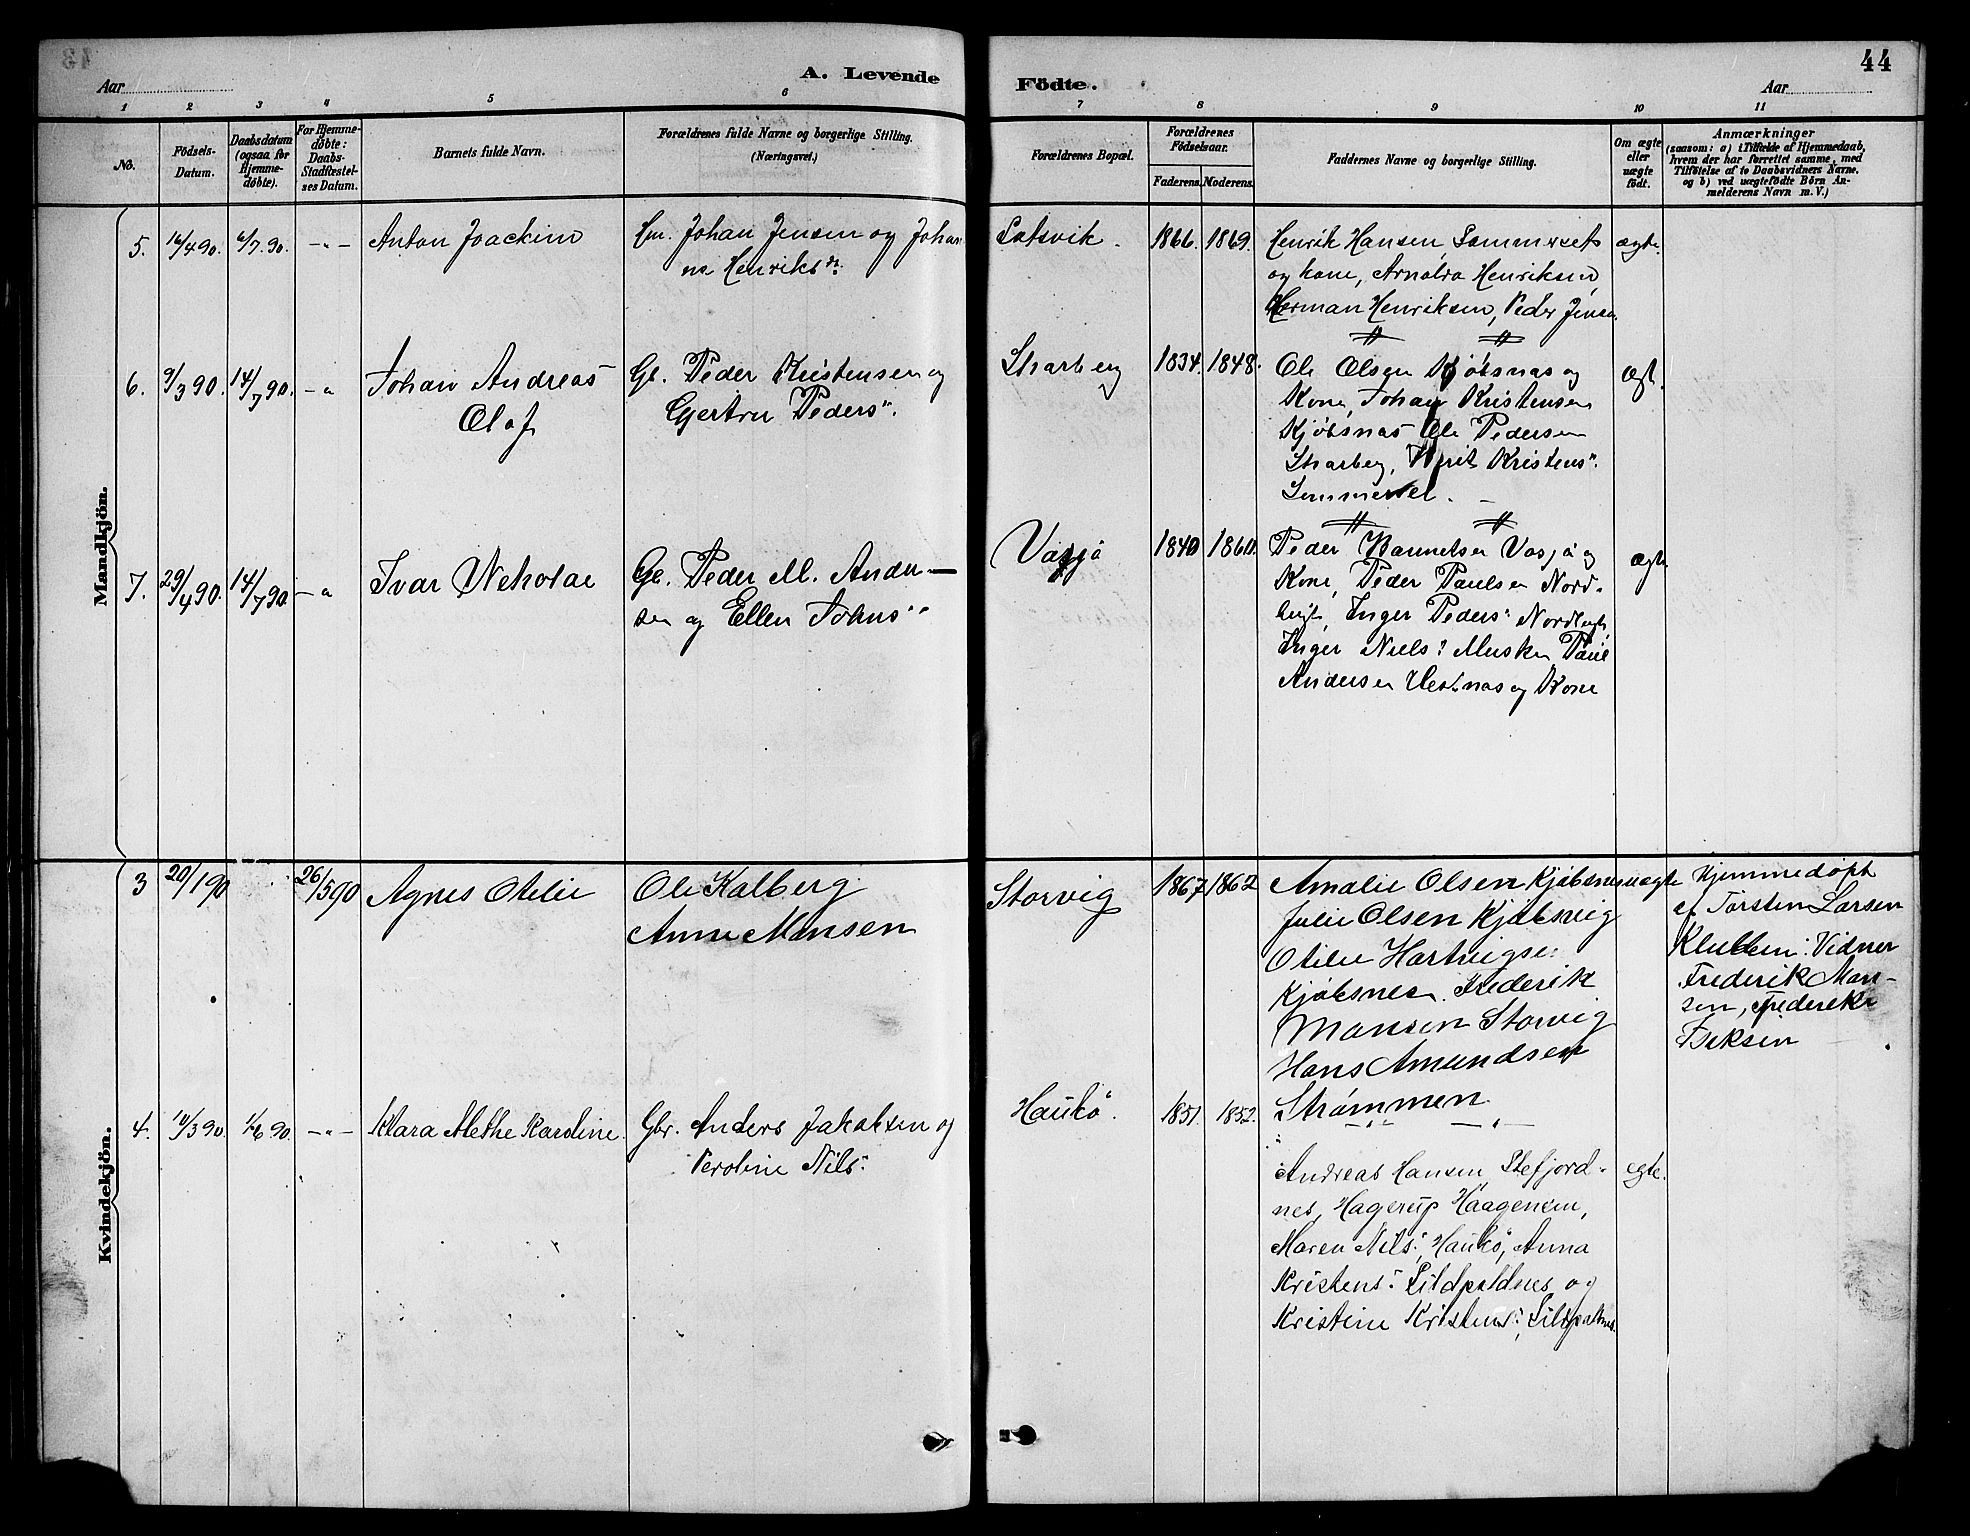 44
Aar
A. Levende
Födte.
Aar
1 2 3 4 5 6 7 8 9 10 11
No.
Födsels-
Datum.
Daabsdatum
(ogsaa for
Hjemme-
döbte).
For Hjemme-
döbte:
Daabs-
Stadfæstel-
ses Datum.
Barnets fulde Navn.
Forældrenes fulde Navne og borgerlige Stilling.
(Næringsvei.)
Forældrenes Bopæl.
Forældrenes
Födselsaar.
Faderens. Moderens.
Faddernes Navne og borgerlige Stilling.
Om ægte
eller
uægte
födt.
Anmærkninger
(saasom: a) i Tilfælde af Hjemmedaab,
hvem der har forrettet samme, med
Tilföielse af to Daabsvidners Navne.
og b) ved uægtefödte Börn An-
melderens Navn m. V.)
Mandkjön.
5. 16/4 90. 6/7. 90. -"- Anton Joachim
Hm. Johan Jensen og Johan
ne Henriks dr.
1866. 1869.
Henrik Hansen Sommerset
og kone, Arnolda Henriksen,
Herman Henriksen, Peder Jensen
ægte.
6. 9/3 90. 14/7 90. -"
Johan Andreas
Olaf
Gl. Peder Kristensen og
Gjertru Peders".
Skarberg
1834. 1848.
Ole Olsen Kjøbsnas og
Kone, Johan Kristensen
Kjøbsnas Ole Pedersen
Skarberg, Kristens".
Sommersel.
ægt.
7. 29/4 90. 14/7 90. -"
Ivar Nekolai
Gl. Peder M. Ander-
sen og Ellen Johns"
1840 1860.
Peder og
Kone, Peder Paulsen Nord-
bugt, Inger Peders" Nordbugt,
Inger Niels: Musken Paul
Andersen Vestnas og Kone
ægte
Kvindekjön.
3 20/1 90 26/5 90 Agnes Otelie
Ole Kalberg
Anne Monsen
Storvig
1867 1862
Amalie Olsen Kjøbsnes
Julie Olsen Kjøbsvig
Otelie Hartvigsen
Kjøbsnes. Frederik
Monsen Storvig
Hans Amundsen
Strømmen
uægte
Hjemmedøpt
af Torsten Larsen
Klubben: Vidner
Frederik Mon-
sen, Frederekke
4. 1/6 90. -"-
Klara Alethe Karoline.
Gbr. Anders Jakobsen og
Peroline Nils":
Haukö.
1851. 1852.
Andreas Hansen, Stefjord-
nes, Hagerup Haagensen,
Maren Nils", Haukö, Anna
Kristens": Sildpoldnes og
Kristine Kristens":
egte.